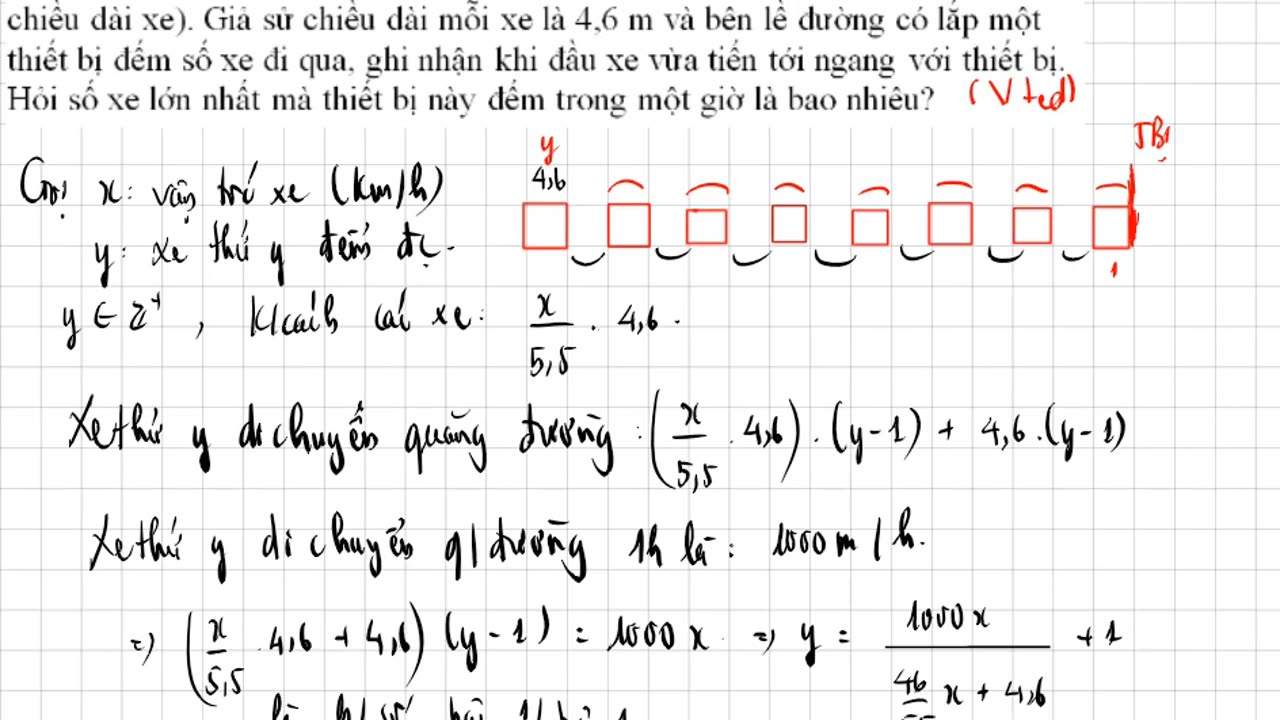 chiều dài xe). Giả sử chiều dài mỗi xe là 4,6 m và bên lề đường có lắp một
thiết bị đếm số xe đi qua, ghi nhận khi đầu xe vừa tiến tới ngang với thiết bị.
Hỏi số xe lớn nhất mà thiết bị này đếm trong một giờ là bao nhiêu? (Vted)
TBị
y
4,6
1
Gọi x: vận tốc xe (Km/h)
y: xe thứ y đếm đc.
y ∈ Z⁺, K/cách các xe: x/5,5 . 4,6.
Xe thứ y di chuyển quãng đường: (x/5,5 . 4,6).(y-1) + 4,6.(y-1)
Xe thứ y di chuyển q/đường 1h là: 1000m/h.
=> (x/5,5 . 4,6 + 4,6)(y-1) = 1000x => y = 1000x / (46/55 x + 4,6) + 1